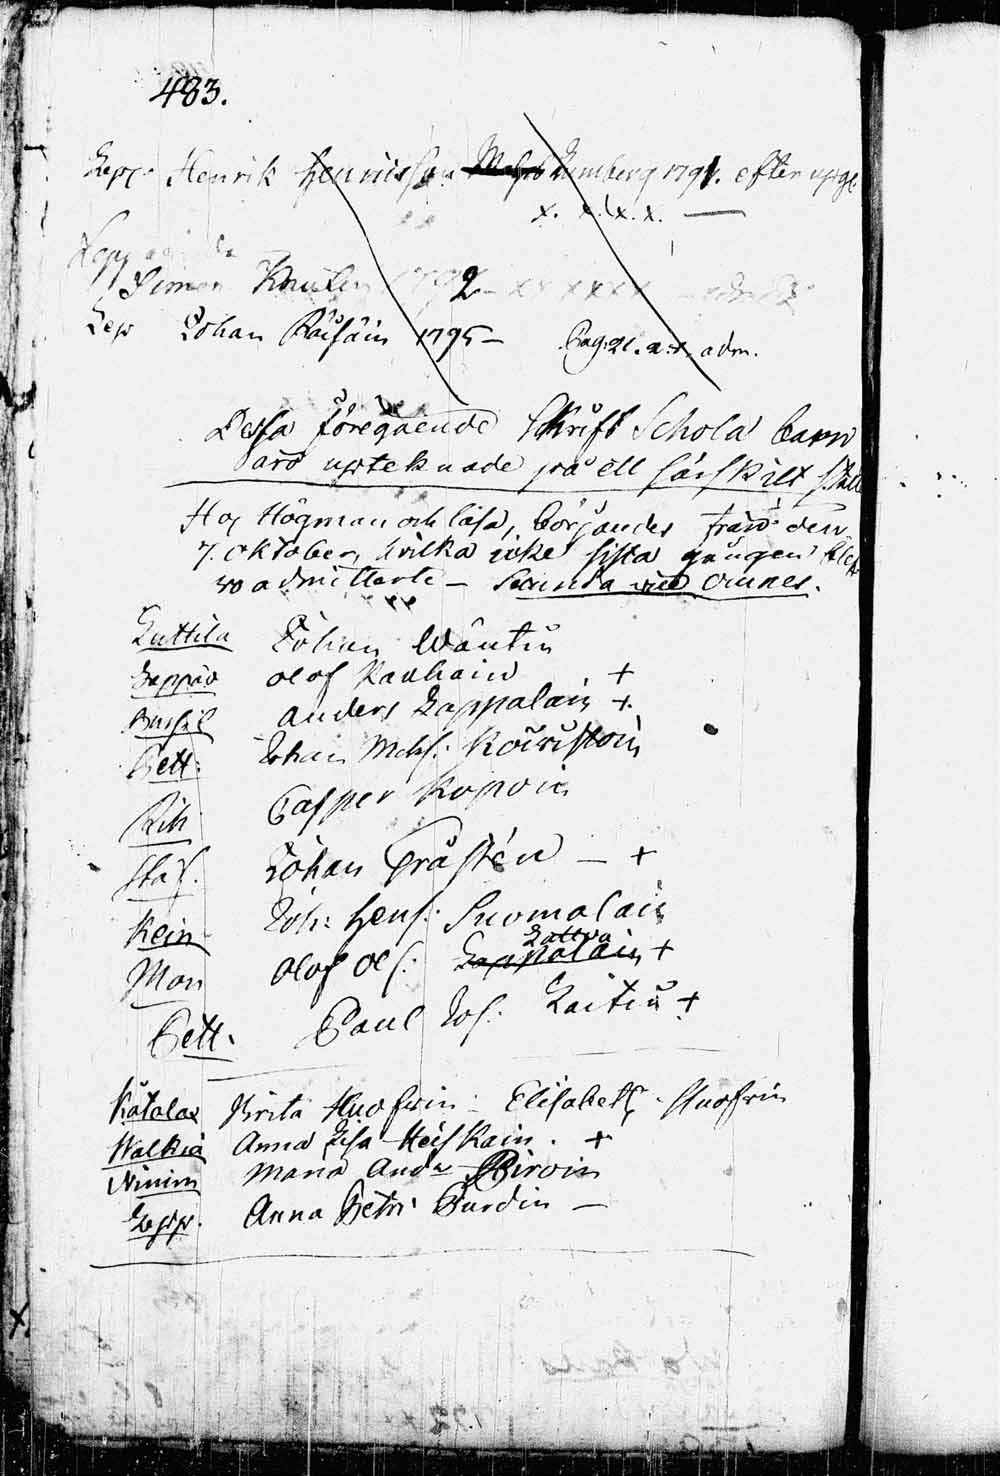 483.
Lepp. Henrik Henrisson Lumberg 1791. efter
x. x. x. x. —
Simon Knuten 1792 — x x x x x x
Lep Johan Räisäin 1795 — Pag: 21. a. x. adm.
Dessa föregående Skrift Schola barn
äro upteknade på ett särskilt ställ
Hos Högman och läsa, börjandes från den
7. Oktober, hvilka icke sista gången blef
vo admitterte — Secunda omnes.
Kuttila Johan Wäntin
Leppäv Olof Kauhain +
Anders Lappalain +
Pett. Johan Mchs. Koivistoin
Rih Casper Kopoin
Staf. Johan Trästén — +
Kein Joh: Hens: Suomalain
Mon Olof Ols: Lappalain Lattva +
Pett. Paul Jos. Laitin +
Kåtalax Brita Huofvin — Elisabeth Huofvin
Walkiä Anna Lisa Heiskain. +
Ninim Maria And:r Hirvoin
Lepp. Anna Petri Purdin —